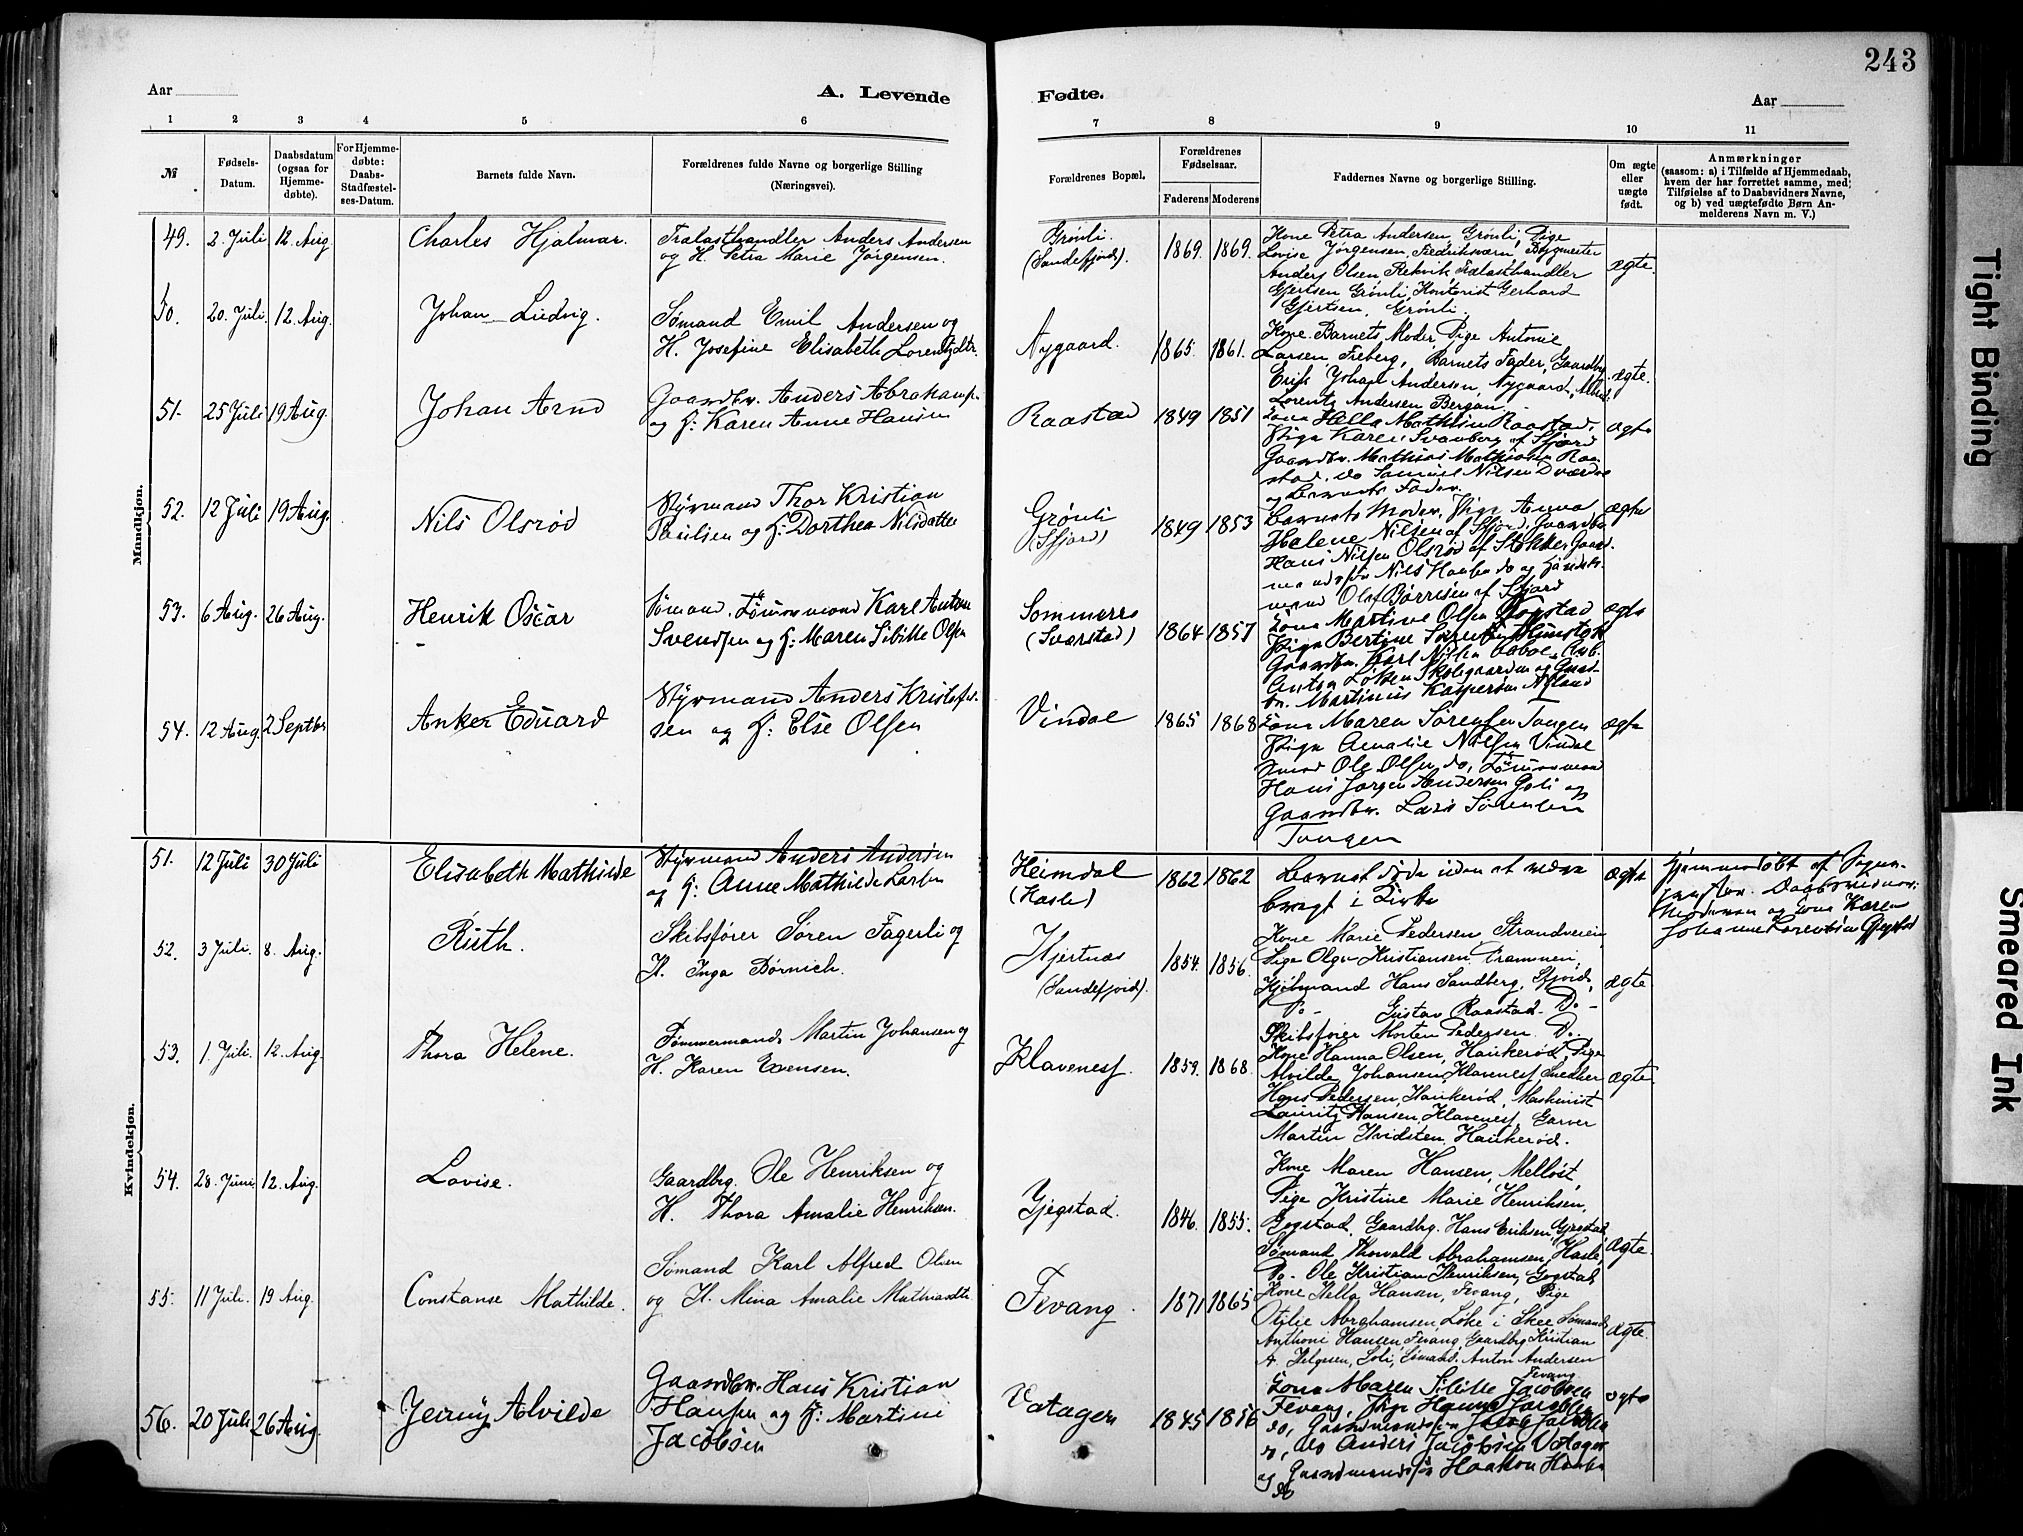 243
Aar
A. Levende
Fødte.
Aar
1 2 3 4 5 6 7 8 9 10 11
№
Fødsels-
Datum.
Daabsdatum
(ogsaa for
Hjemme-
døbte).
For Hjemme-
døbte:
Daabs-
Stadfæstel-
ses-Datum.
Barnets fulde Navn.
Forældrenes fulde Navne og borgerlige Stilling
(Næringsvei).
Forældrenes Bopæl.
Forældrenes
Fødselsaar.
Faderens Moderens
Faddernes Navne og borgerlige Stilling.
Om ægte
eller
uægte
født.
Anmærkninger
(saasom: a) i Tilfælde af Hjemmedaab,
hvem der har forrettet samme, med
Tilføielse af to Daabsvidners Navne,
og b) ved uægtefødte Børn An-
melderens Navn m. V.)
Mandkjøn.
49. 2. Juli 12. Aug. Charles Hjalmar.
Trælasthandler Anders Andersen
og H. Petra Marie Jørgensen.
Grønli.
(Sandefjord).
1869. 1869.
Kone Petra Andersen, Grønli, Pige
Lovise Jørgensen, Fredriksværn, Bygmester
Anders Olsen Rekvik, Trælasthandler
Gjertsen Grønli, Kontorist Gerhard
Gjertsen, Grønli.
ægte.
50. 20. Juli. 12. Aug. Johan Ludvig.
Sømand Emil Andersen og
H. Josefine Elisabeth Lorentzdtr.
Nygaard.
1865. 1861.
Kone Barnets Moder, Pige Antonie
Larsen Freberg, Barnets Fader, Gaardbr.
Erik Johan Andersen, Nygaard,
Lorentz Andersen Bergan.
ægte.
51. 25 Juli 19 Aug. Johan Arnd
Gaardbr. Anders Abrahams.
og H: Karen Anne Hansen
Raastad
1849 1851
Kone Hella Mathisen Raastad,
Pige Karen Svanberg af Sfjord
Gaardbr. Mathias Mathiasen Raa-
stad, do Samuel Nilsen
og Barnets Fader.
ægte
52. 12 Juli 19 Aug. Nils Olsrød
Styrmand Thor Kristian
Paulsen og H: Dorthea Nilsdatter
Grønli
(Sfjord)
1849 1853
Barnets Moder, Pige Anna
Helene Nilsen af Sfjord, Gaardbr.
Hans Nilsen Olsrød af Stokke, Gaard-
mandsfør Nils Haaben do og Handels-
mand Olaf Børresen af Sfjord
ægte
53. 6 Aug. 26 Aug. Henrik Oscar
Sømand, Tømmermand Karl Anton
Svendsen og H: Maren Sibille Olsen
Sommerres
(Sværstad)
1864 1857
Kone Martine Olsen
Pige Bertine Sørensen
Gaardbr. Karl Nilsen
Anton Løken Skolegaarden og Gaard-
br. Martinius Kaspersen Nyland
ægte
54. 12 Aug. 2 Septbr Anker Eduard
Styrmand Anders Kristofer-
sen og H: Else Olsen
Vindal
1865 1868
Kone Maren Sørensen Tangen
Pige Amalie Nilsen Vindal
Smed Ole Olsen do, Tømmermand
Hans Jørgen Andersen Goli og
Gaardbr. Lars Sørensen
Tangen
ægte
Kvindekjøn.
51. 12 Juli 30 Juli Elisabeth Mathilde
Styrmand Anders Andersen
og H: Anne Mathilde Larsen
Heimdal
(Hasle)
1862 1862
Barnet døde uden at være
bragt i Kirke
ægte
Hjemmedøbt af Sogne-
præsten. Daabsvidner:
Moderen og Kone Karen
Johanne Lorentsen
52. 3 Juli. 8. Aug. Ruth.
Skibsfører Søren Fagerli og
H. Inga Børnich.
Hjertnæs
(Sandefjord).
1854. 1856.
Kone Marie Pedersen Strandveien
Pige Olga Kristiansen Prammen,
Kjøbmand Hans Sandberg, Sfjord,
Do - Gustav Raastad. Do -
Skibsfører Morten Pedersen. Do -
ægte
53. 1. Juli. 12. Aug. Thora Helene.
Tømmermand Martin Johansen og
H. Karen Evensen.
Klavenesf.
1859. 1868.
Kone Hanna Olsen, Haukerød, Pige
Alvilde Johansen, Klavenesf, Snedker
Hans Pedersen, Haukerød, Maskinist
Lauritz Hansen, Klavenesf, Garver
Martin Hvidsten, Haukerød.
ægte
54. 28. Juni. 12. Aug. Lovise.
Gaardbrg. Ole Henriksen og
H. Thora Amalie Henriksen.
Gjegstad.
1846. 1855.
Kone Maren Hansen, Melløst,
Pige Kristine Marie Henriksen,
Gogstad, Gaardbrg. Hans Eriksen, Gjegstad,
Sømand Thorvald Abrahamsen, Hasle,
Do - Ole Kristian Henriksen, Gogstad
ægte.
55. 11 Juli. 19 Aug. Constanse Mathilde.
Sømand Karl Alfred Olsen
og H. Mina Amalie Mathiasdtr.
Fevang.
1871 1865
Kone Hella Hansen, Fevang, Pige
Otilie Abrahamsen Løke i Skee, Sømand
Anthoni Hansen, Fevang, Gaardbrg Kristian
A. Helgesen, Soli, Sømand Anton Andersen
Fevang
ægte.
56. 20 Juli 26 Aug. Jenny Alvilde
Gaardbr. Hans Kristian
Hansen og H: Martine
Jacobsen
Vatagen
1845 1856
Kone Maren Sibille Jacobsen
Fevang, Pige Hanna Jacobsen
do, Gaardmandsfør Jacob Jacobsen
do, do Anders Jacobsen Vatagen
og Gaardmandsfør Haakon Haaben
do
ægte
Tight Binding
Smeared Ink